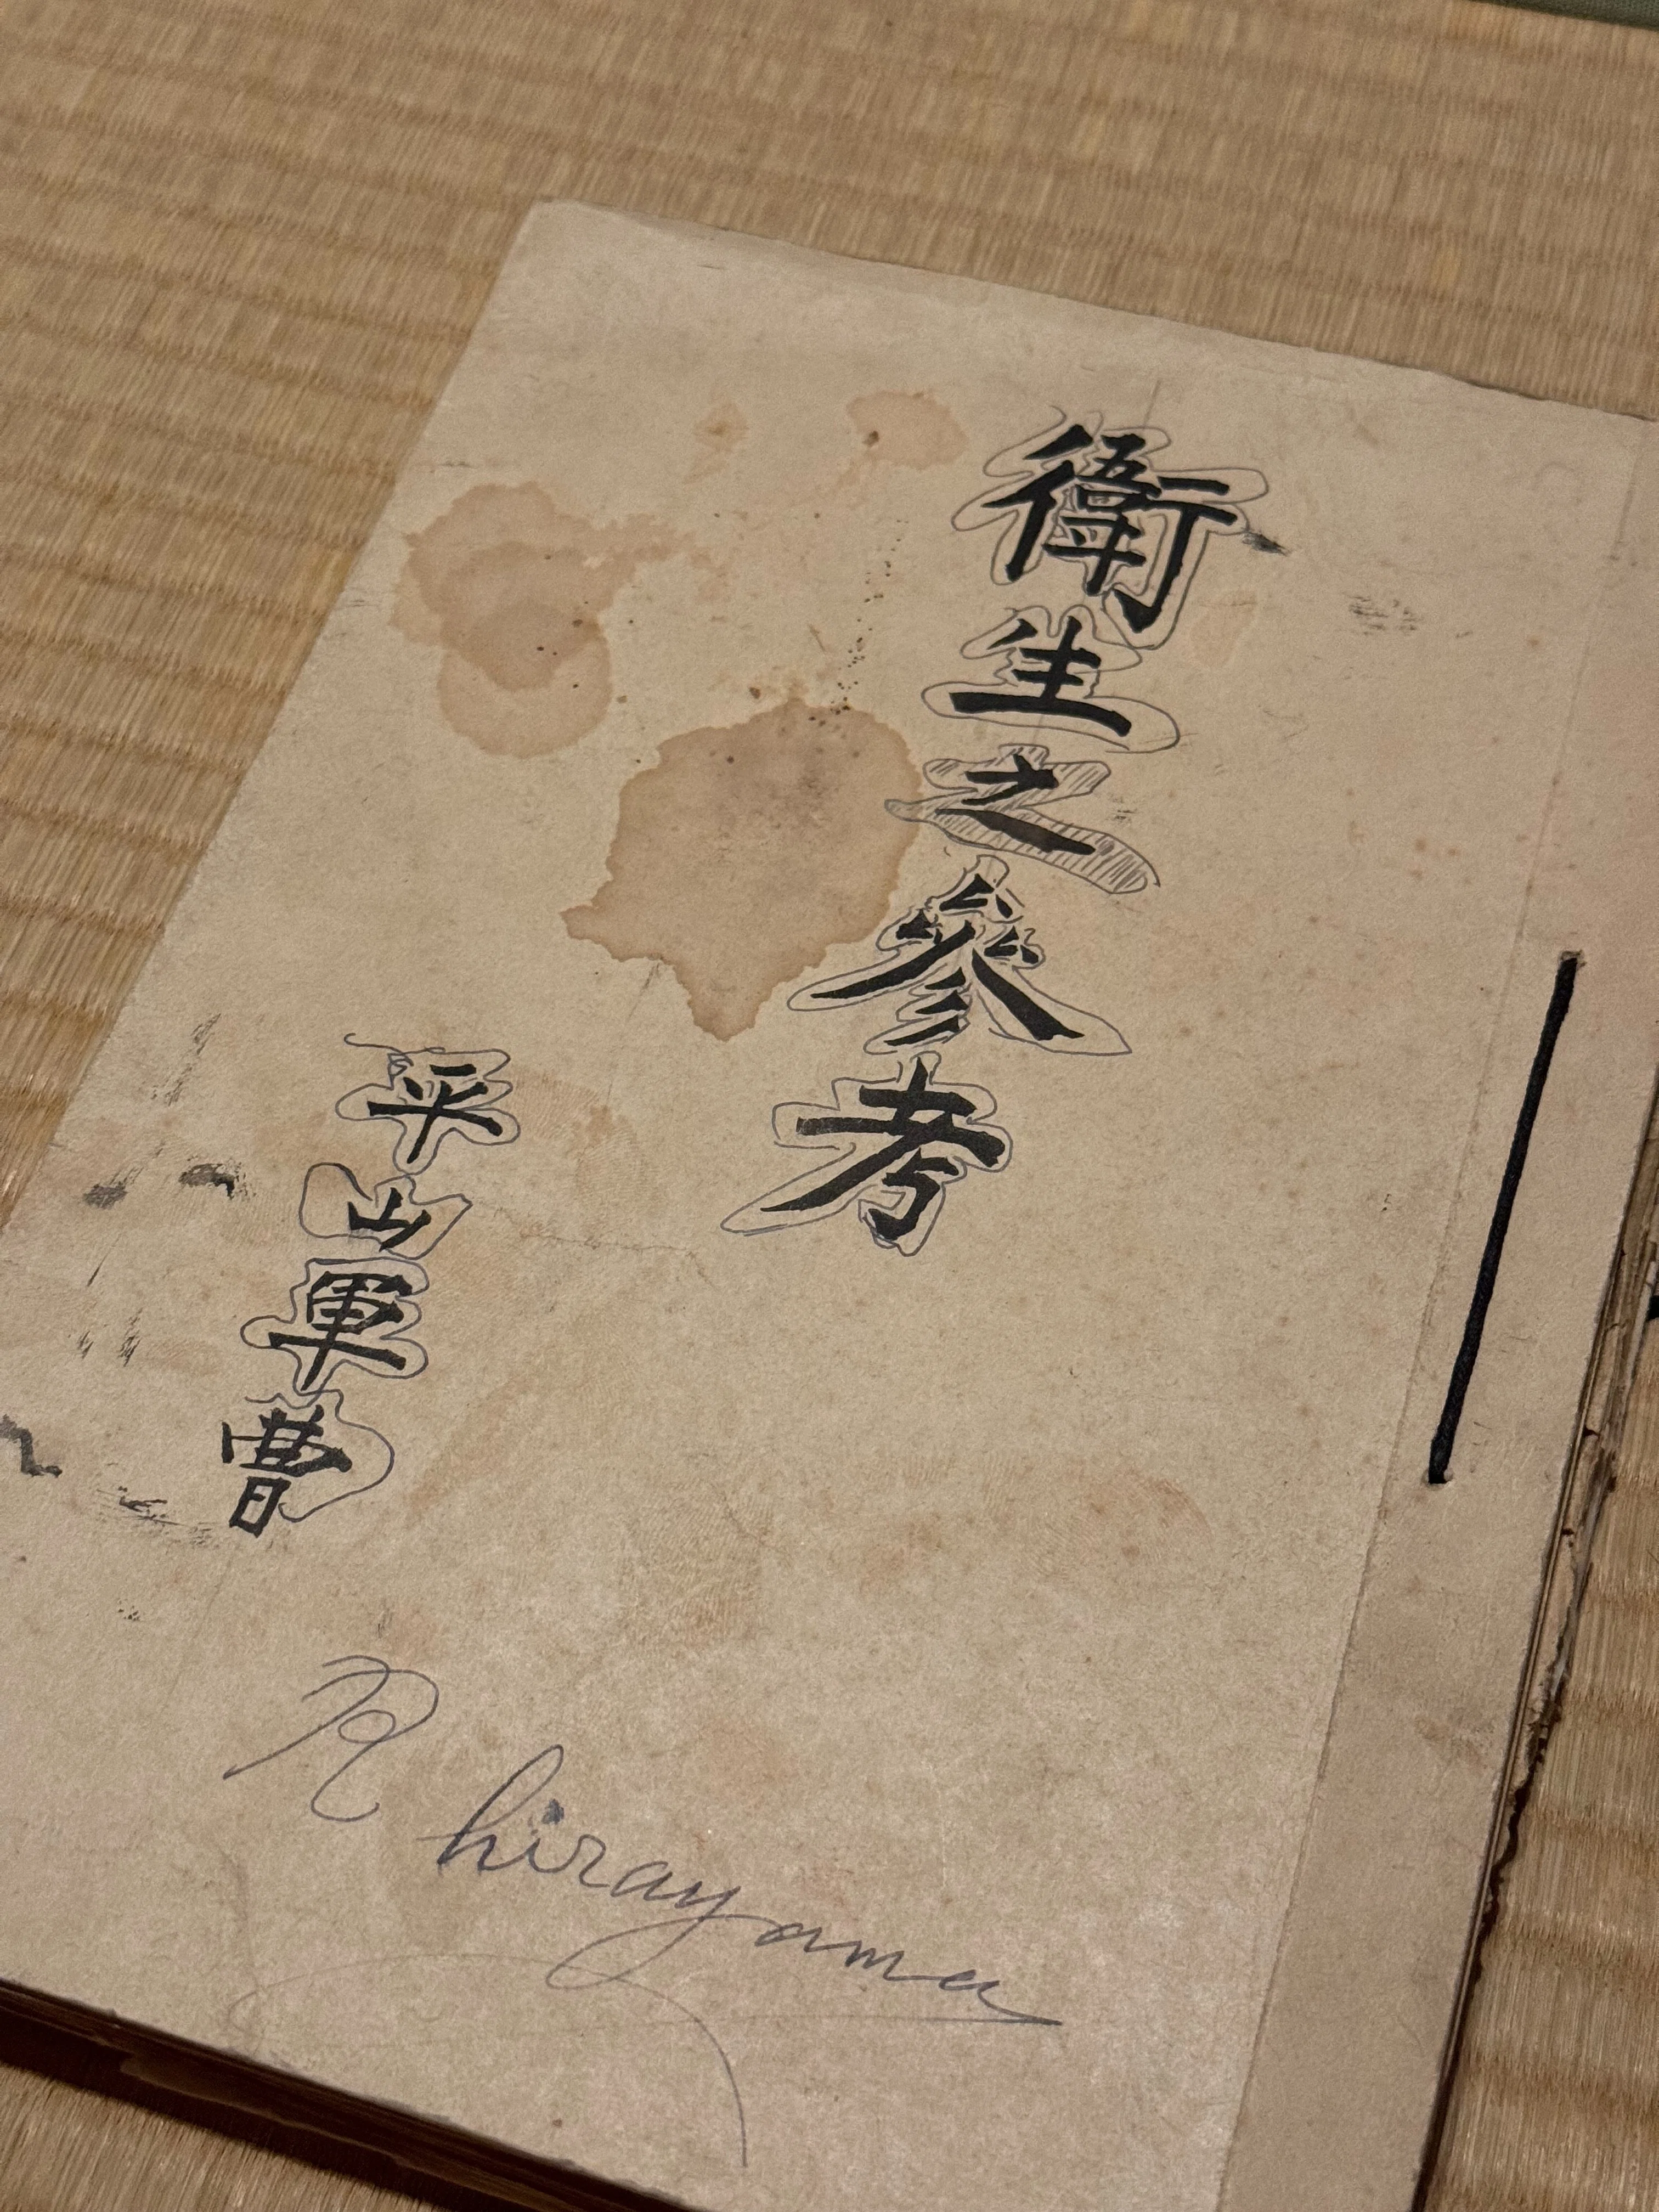 衛生之參考
平山軍曹
R hirayama